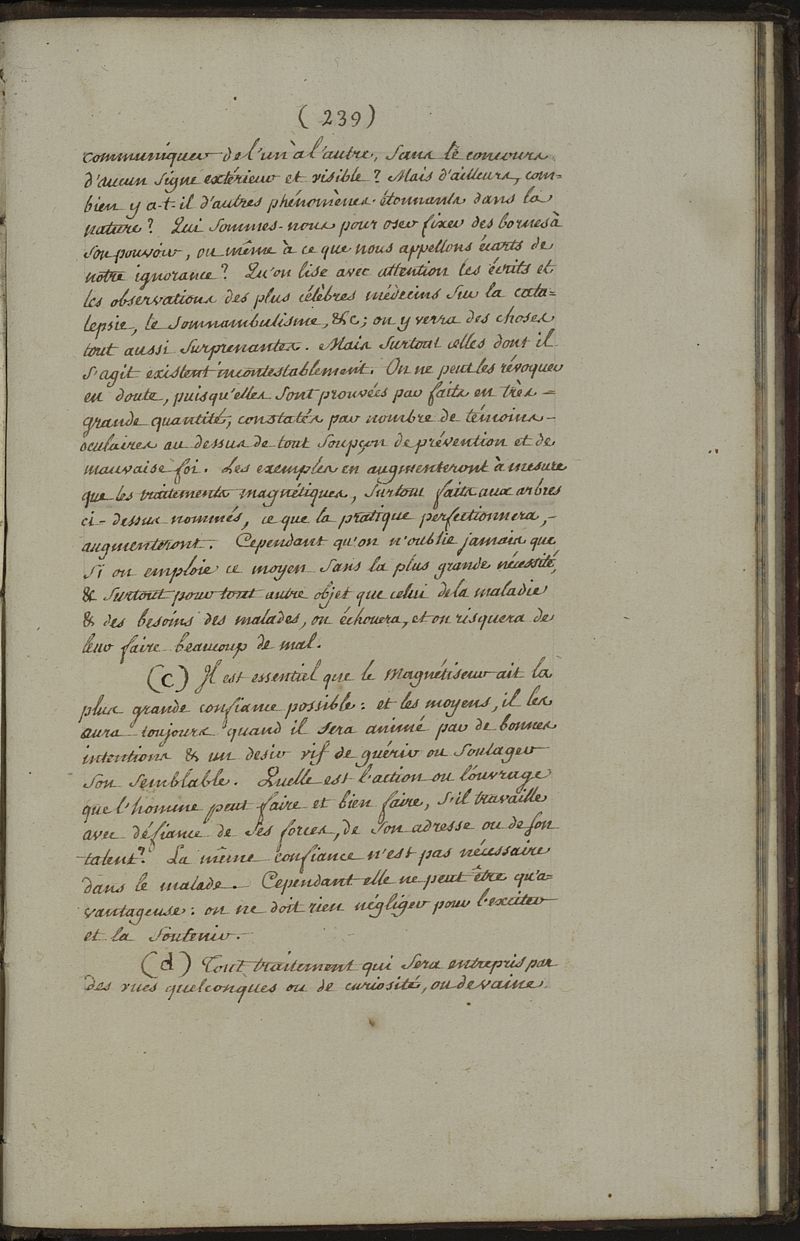 (239)
communiquer de l'un à l'autre, sans le concours
d'aucun signe extérieur et visible ? Mais d'ailleurs, com=
bien y a-t-il d'autres phénomènes étonnants dans la
nature ? Qui sommes-nous pour oser fixer des bornes à
son pouvoir, ou même à ce que nous appellons écarts de
notre ignorance ? Qu'on lise avec attention les écrits et
les observations des plus célèbres médecins sur la cata=
lepsie, le somnambulisme, &c; on y verra des choses
tout aussi surprenantes. Mais surtout celles dont il
s'agit existent incontestablement. On ne peut les révoquer
en doute, puisqu'elles sont prouvées par faits en très =
grande quantité, constatés par nombre de témoins -
oculaires au dessus de tout soupçon de prévention et de
mauvaise foi. Les exemples en augmenteront à mesure
que les traitements magnétiques, surtout faits aux arbres
ci-dessus nommés, ce que la pratique perfectionnera, -
augmenteront. Cependant qu'on n'oublie jamais que
si on emploie ce moyen sans la plus grande nécessité,
& surtout pour tout autre objet que celui de la maladie
& des besoins des malades, on échouera, et on risquera de
leur faire beaucoup de mal.
(c) Il est essentiel que le Magnétiseur ait la
plus grande confiance possible : et les moyens, il les
aura toujours quand il sera animé par de bonnes
intentions & un desir vif de guérir ou soulager
son semblable. Quelle est l'action ou l'ouvrage
que l'homme peut faire et bien faire, s'il travaille
avec défiance de ses forces, de son adresse ou de son
talent ? La même confiance n'est pas nécessaire
dans le malade. Cependant elle ne peut être qu'a=
vantageuse : on ne doit rien négliger pour l'exciter
et la soutenir.
(d) Tout traitement qui sera entrepris par
des vues quelconques ou de curiosité, ou de vaine